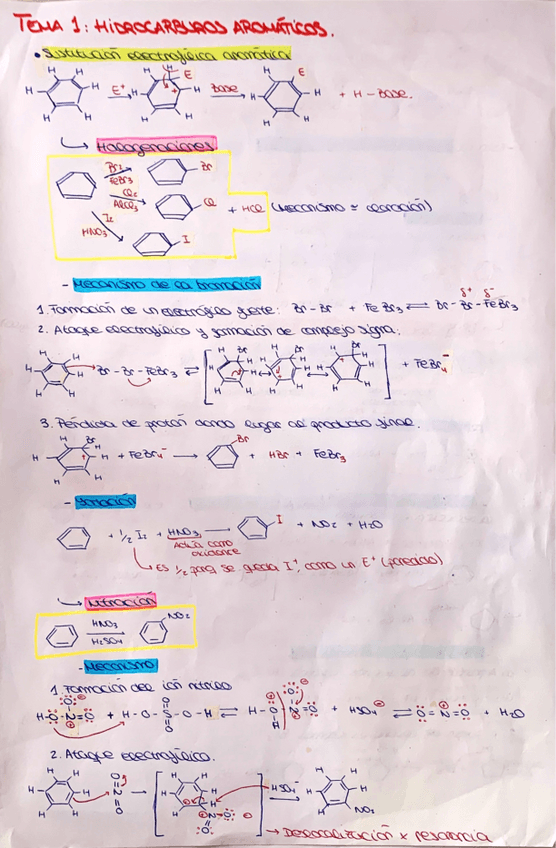 TEMA 1: HIDROCARBUROS AROMÁTICOS.
• Sustitución electrofílica aromática
E⁺ Base + H - Base.
Halogenaciones
Br₂
FeBr₃
Br
Cl₂
AlCl₃
Cl
+ HCl (Mecanismo = cloración)
I₂
HNO₃
I
- Mecanismo de la bromación
1. Formación de un electrófilo fuerte: Br - Br + FeBr₃ ⇌ Br - Br - FeBr₃
2. Ataque electrofílico y formación de complejo sigma.
Br - Br - FeBr₃ ⇌ + FeBr₄⁻
3. Pérdida de protón dando lugar al producto final.
+ FeBr₄⁻ → Br + HBr + FeBr₃
- Yodación
+ ½ I₂ + HNO₃ → I + NO₂ + H₂O
Actúa como
oxidante
Es ½ porq se gasta I⁺, como un E⁺ (parecido)
Nitración
HNO₃
H₂SO₄
NO₂
- Mecanismo
1. Formación del ión nitrilo
H-O-N=O + H-O-S-O-H ⇌ H-O-N=O + HSO₄⁻ ⇌ O=N=O + H₂O
2. Ataque electrofílico.
O=N=O → HSO₄⁻ → NO₂
→ Deslocalización x resonancia